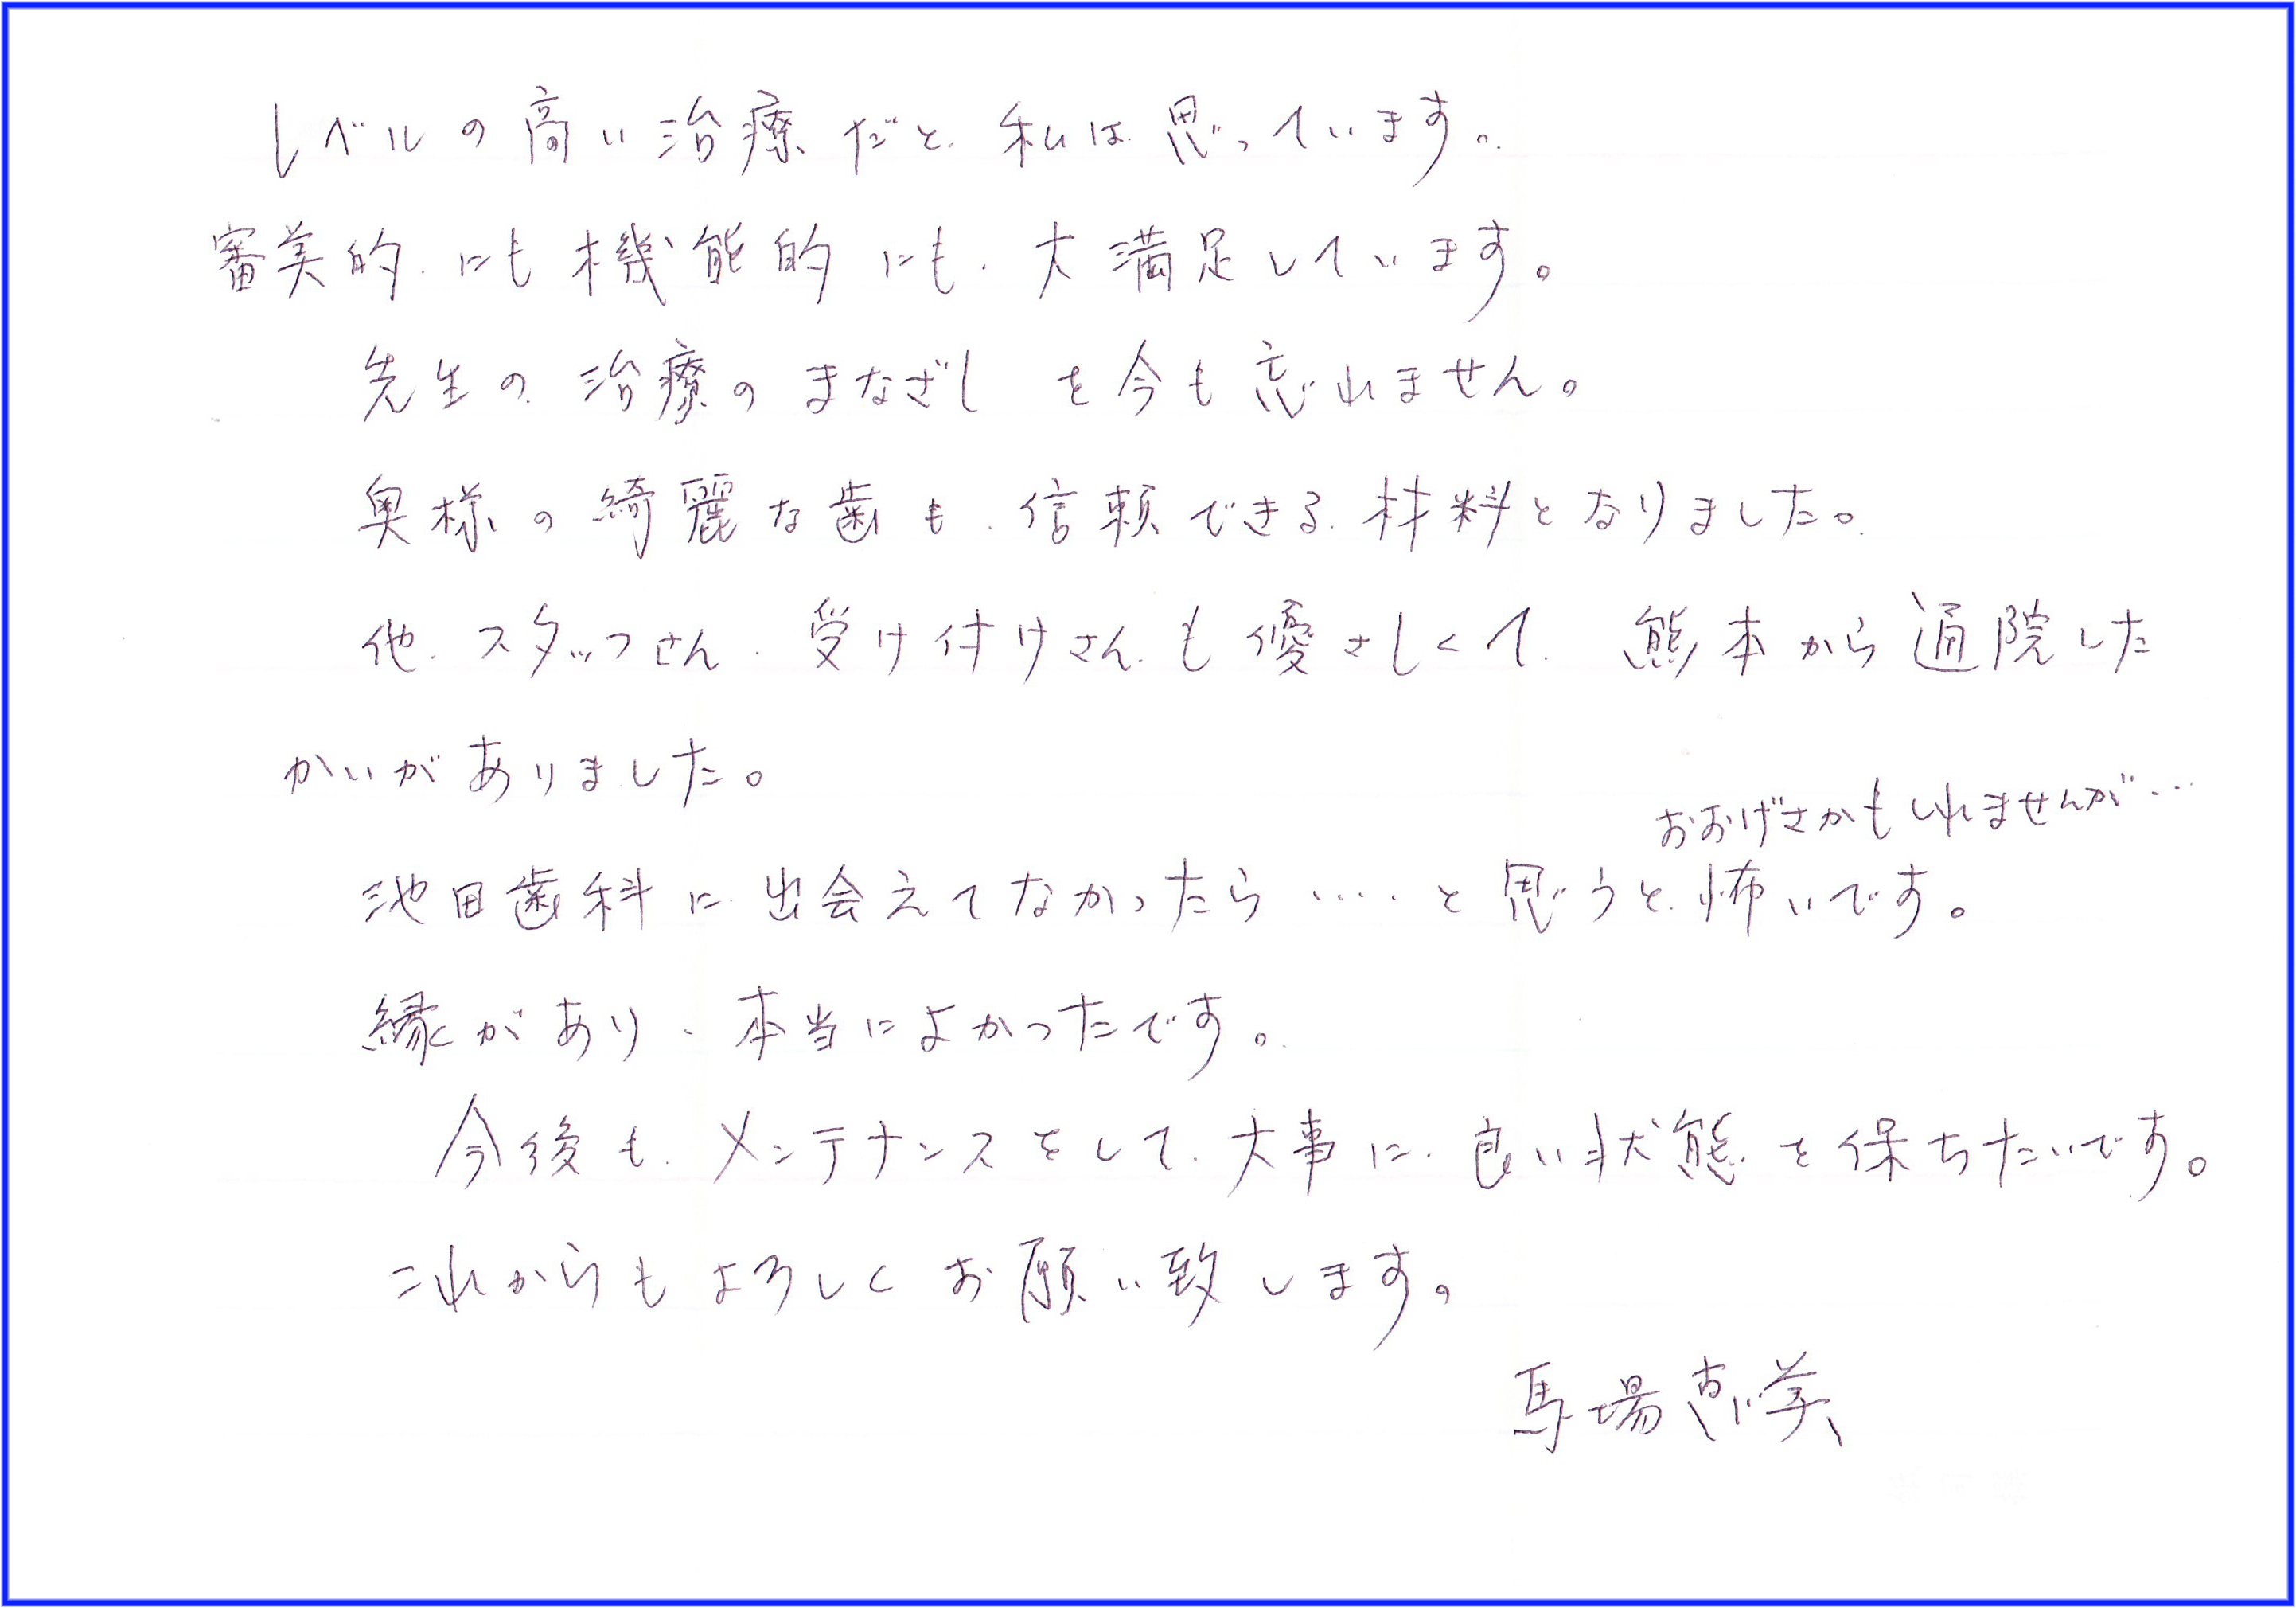 レベルの高い治療だと、私は思っています。
審美的にも機能的にも、大満足しています。
先生の治療のまなざしを今も忘れません。
奥様の綺麗な歯も、信頼できる材料となりました。
他、スタッフさん、受け付けさんも優さしくて、熊本から通院した
かいがありました。
おおげさかもしれませんが…
池田歯科に出会えてなかったら‥‥と思うと、怖いです。
縁があり、本当によかったです。
今後も、メンテナンスをして、大事に、良い状態を保ちたいです。
これからもよろしくお願い致します。
馬場恵美